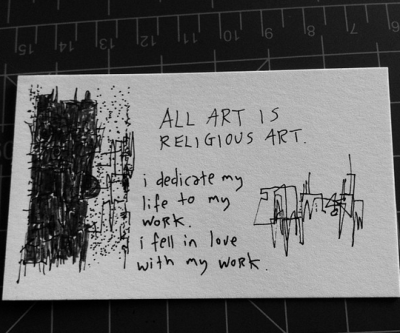 15 14 13 12 11 10 9 8 7 6
ALL ART IS
RELIGIOUS ART.
i dedicate my
life to my
work.
i fell in love
with my work.